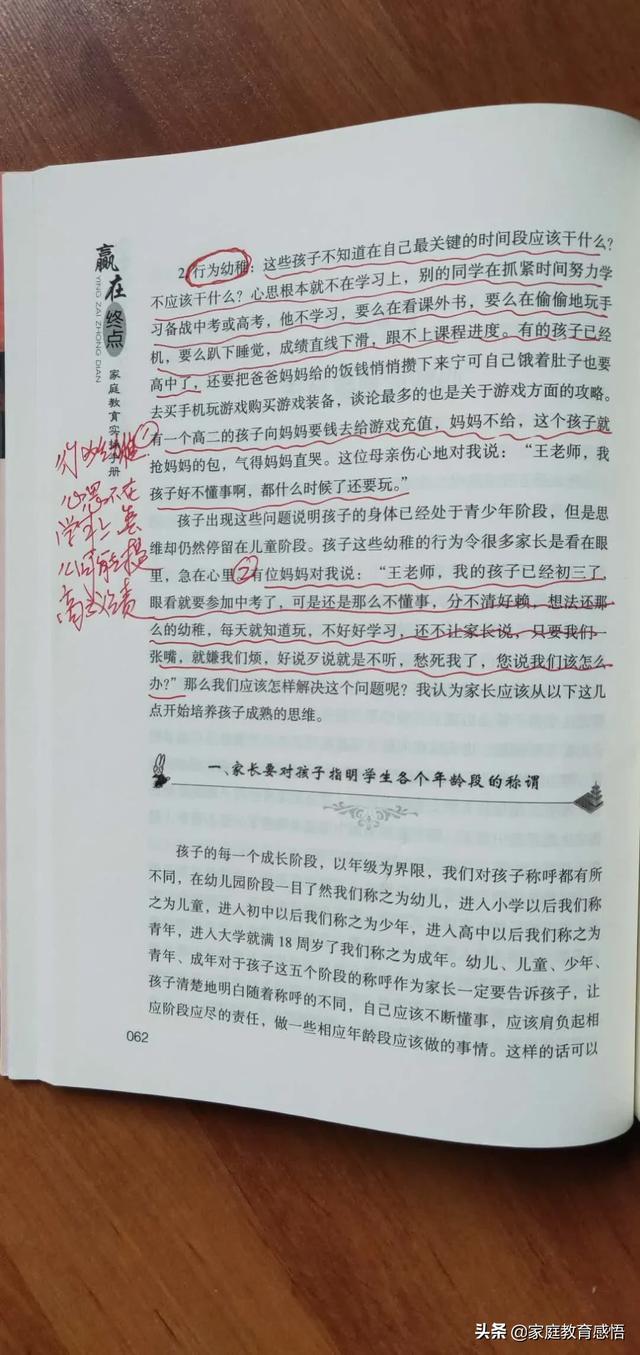 赢在终点
YING ZAI ZHONG DIAN
家庭教育实操手册
2.行为幼稚：这些孩子不知道在自己最关键的时间段应该干什么？
不应该干什么？心思根本就不在学习上，别的同学在抓紧时间努力学
习备战中考或高考，他不学习，要么在看课外书，要么在偷偷地玩手
机，要么趴下睡觉，成绩直线下滑，跟不上课程进度。有的孩子已经
高中了，还要把爸爸妈妈给的饭钱悄悄攒下来宁可自己饿着肚子也要
去买手机玩游戏购买游戏装备，谈论最多的也是关于游戏方面的攻略。
有一个高二的孩子向妈妈要钱去给游戏充值，妈妈不给，这个孩子就
抢妈妈的包，气得妈妈直哭。这位母亲伤心地对我说：“王老师，我
孩子好不懂事啊，都什么时候了还要玩。”
孩子出现这些问题说明孩子的身体已经处于青少年阶段，但是思
维却仍然停留在儿童阶段。孩子这些幼稚的行为令很多家长是看在眼
里，急在心里②有位妈妈对我说：“王老师，我的孩子已经初三了，
眼看就要参加中考了，可是还是那么不懂事，分不清好赖，想法还那
么的幼稚，每天就知道玩，不好好学习，还不让家长说，只要我们一
张嘴，就嫌我们烦，好说歹说就是不听，愁死我了，您说我们该怎么
办？”那么我们应该怎样解决这个问题呢？我认为家长应该从以下这几
点开始培养孩子成熟的思维。
一、家长要对孩子指明学生各个年龄段的称谓
孩子的每一个成长阶段，以年级为界限，我们对孩子称呼都有所
不同，在幼儿园阶段一目了然我们称之为幼儿，进入小学以后我们称
之为儿童，进入初中以后我们称之为少年，进入高中以后我们称之为
青年，进入大学就满 18 周岁了我们称之为成年。幼儿、儿童、少年、
青年、成年对于孩子这五个阶段的称呼作为家长一定要告诉孩子，让
孩子清楚地明白随着称呼的不同，自己应该不断懂事，应该肩负起相
应阶段应尽的责任，做一些相应年龄段应该做的事情。这样的话可以
062
行为幼稚①
心思不在
学习上怎
么可能提
高成绩
头条 @家庭教育感悟